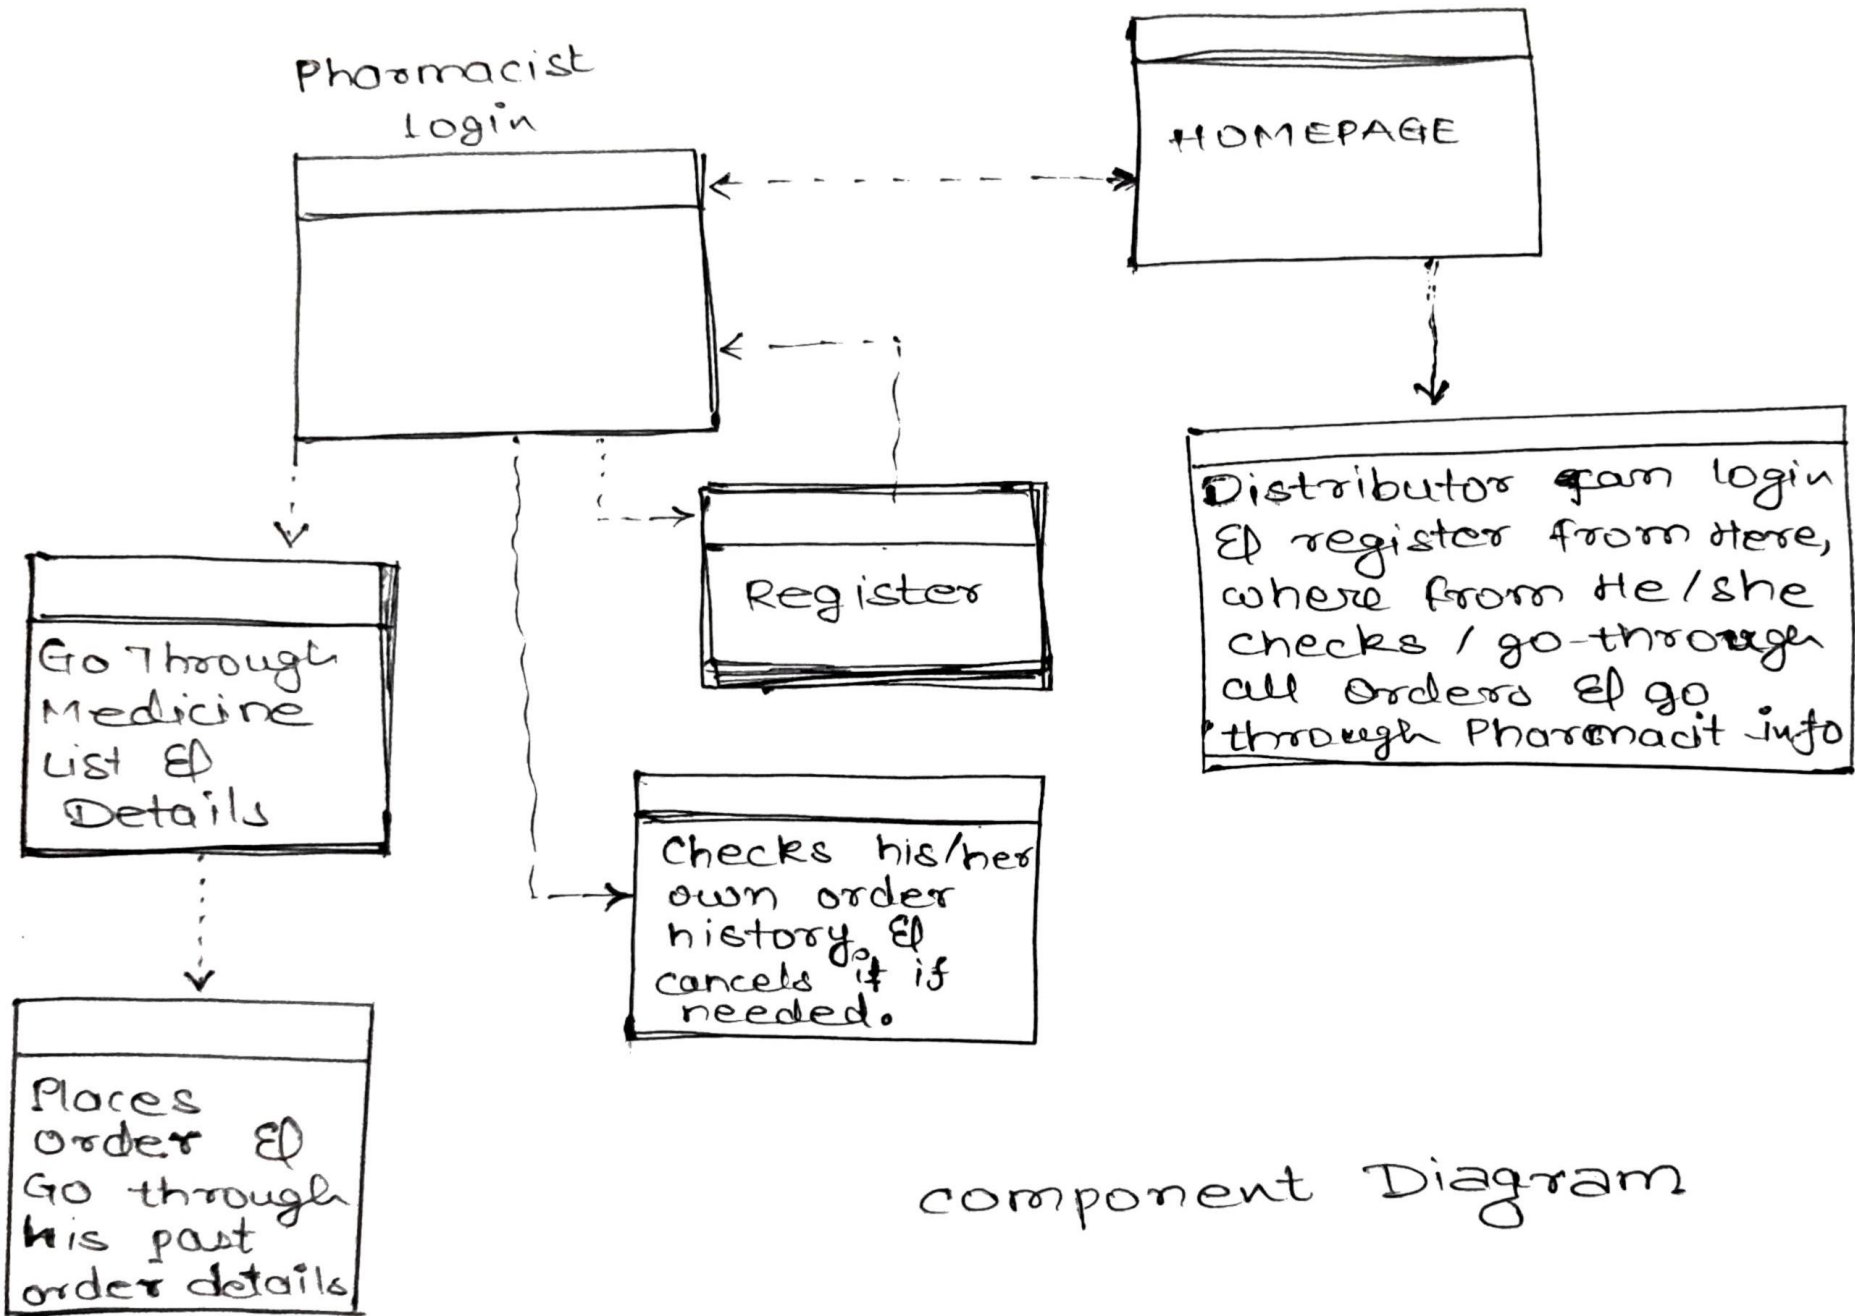 Pharmacist
login
HOMEPAGE
Register
Distributor can login
& register from Here,
where from He/she
checks / go-through
all orders & go
through Pharmacit info
Go Through
Medicine
List &
Details
Checks his/her
own order
history, &
cancels it if
needed.
Places
order &
Go through
his past
order details
component Diagram